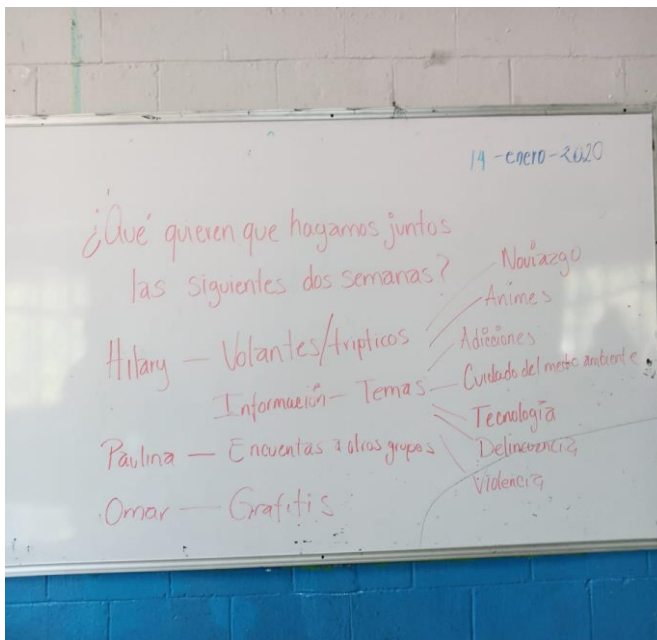 14-enero-2020
¿Qué quieren que hagamos juntos
las siguientes dos semanas?
Hilary — Volantes/tripticos
Información — Temas
Noviazgo
Animes
Adicciones
Cuidado del medio ambiente
Tecnología
Delincuencia
Violencia
Paulina — Encuentas a otros grupos
Omar — Grafitis